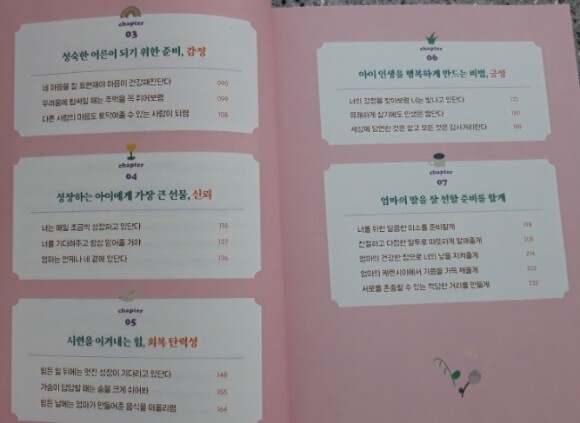 chapter
03
성숙한 어른이 되기 위한 준비, 감정
네 마음을 잘 표현해야 마음이 건강해진단다 095
두려움에 휩싸일 때는 주먹을 꼭 쥐어보렴 099
다른 사람의 마음도 토닥여줄 수 있는 사람이 되렴 108
chapter
04
성장하는 아이에게 가장 큰 선물, 신뢰
너는 매일 조금씩 성장하고 있단다 118
너를 기다려주고 항상 믿어줄 거야 127
엄마는 언제나 네 곁에 있단다 136
chapter
05
시련을 이겨내는 힘, 회복 탄력성
힘든 일 뒤에는 멋진 성장이 기다리고 있단다 148
가슴이 답답할 때는 숨을 크게 쉬어봐 155
힘든 날에는 엄마가 만들어준 음식을 떠올리렴 164
chapter
06
아이 인생을 행복하게 만드는 비법, 긍정
너의 강점을 찾아보렴 너는 빛나고 있단다 175
유쾌하게 살기에도 인생은 짧단다
세상에 당연한 것은 없고 모든 것은 감사거리란다
chapter
07
엄마의 말을 잘 전할 준비를 할게
너를 위한 달콤한 미소를 준비할게 198
친절하고 다정한 말투로 따뜻하게 말해줄게 205
엄마의 건강한 잠으로 너의 낮을 지켜줄게 214
엄마의 케렌시아에서 기쁨을 가득 채울게 222
서로를 존중할 수 있는 적당한 거리를 만들게 232